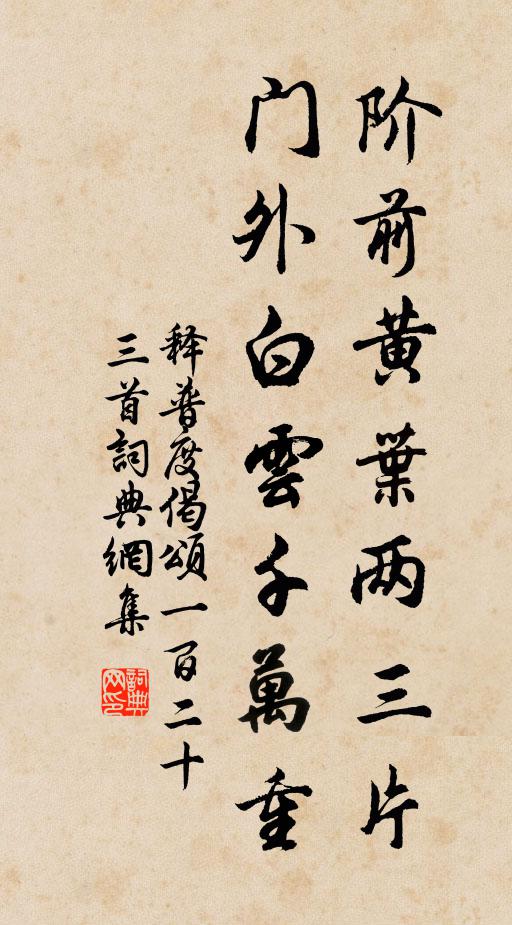 阶前黄葉两三片
门外白雲千萬重
释普度偈頌一百二十
三首詞典網集
詞典网印